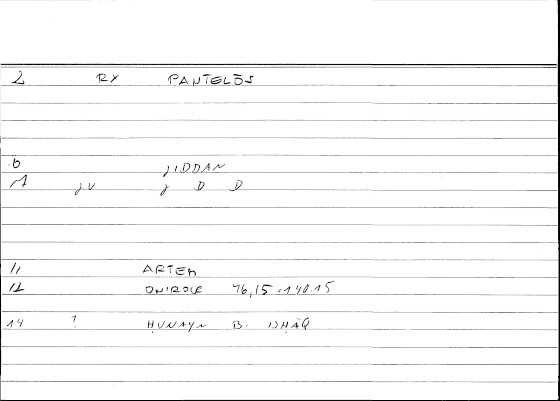 2 RX PANTELŌS
.6 ǧIDDAN
ǧ D D
11 ARTEM
12 ONIROCR 76,15 - 140.15
14 ? ḤUNAYN B. ISḤĀQ